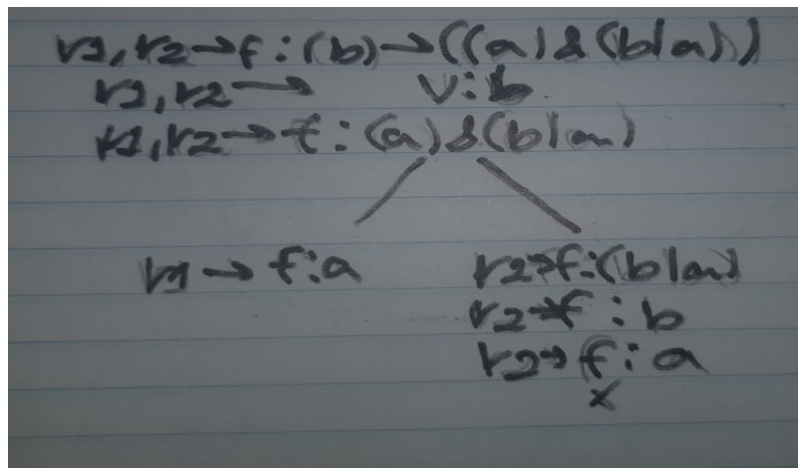 r1,r2→f:(b)→((a)&(b|a))
r1,r2→ v:b
r1,r2→f:(a)&(b|a)
r1→f:a
r2→f:(b|a)
r2→f:b
r2→f:a
x